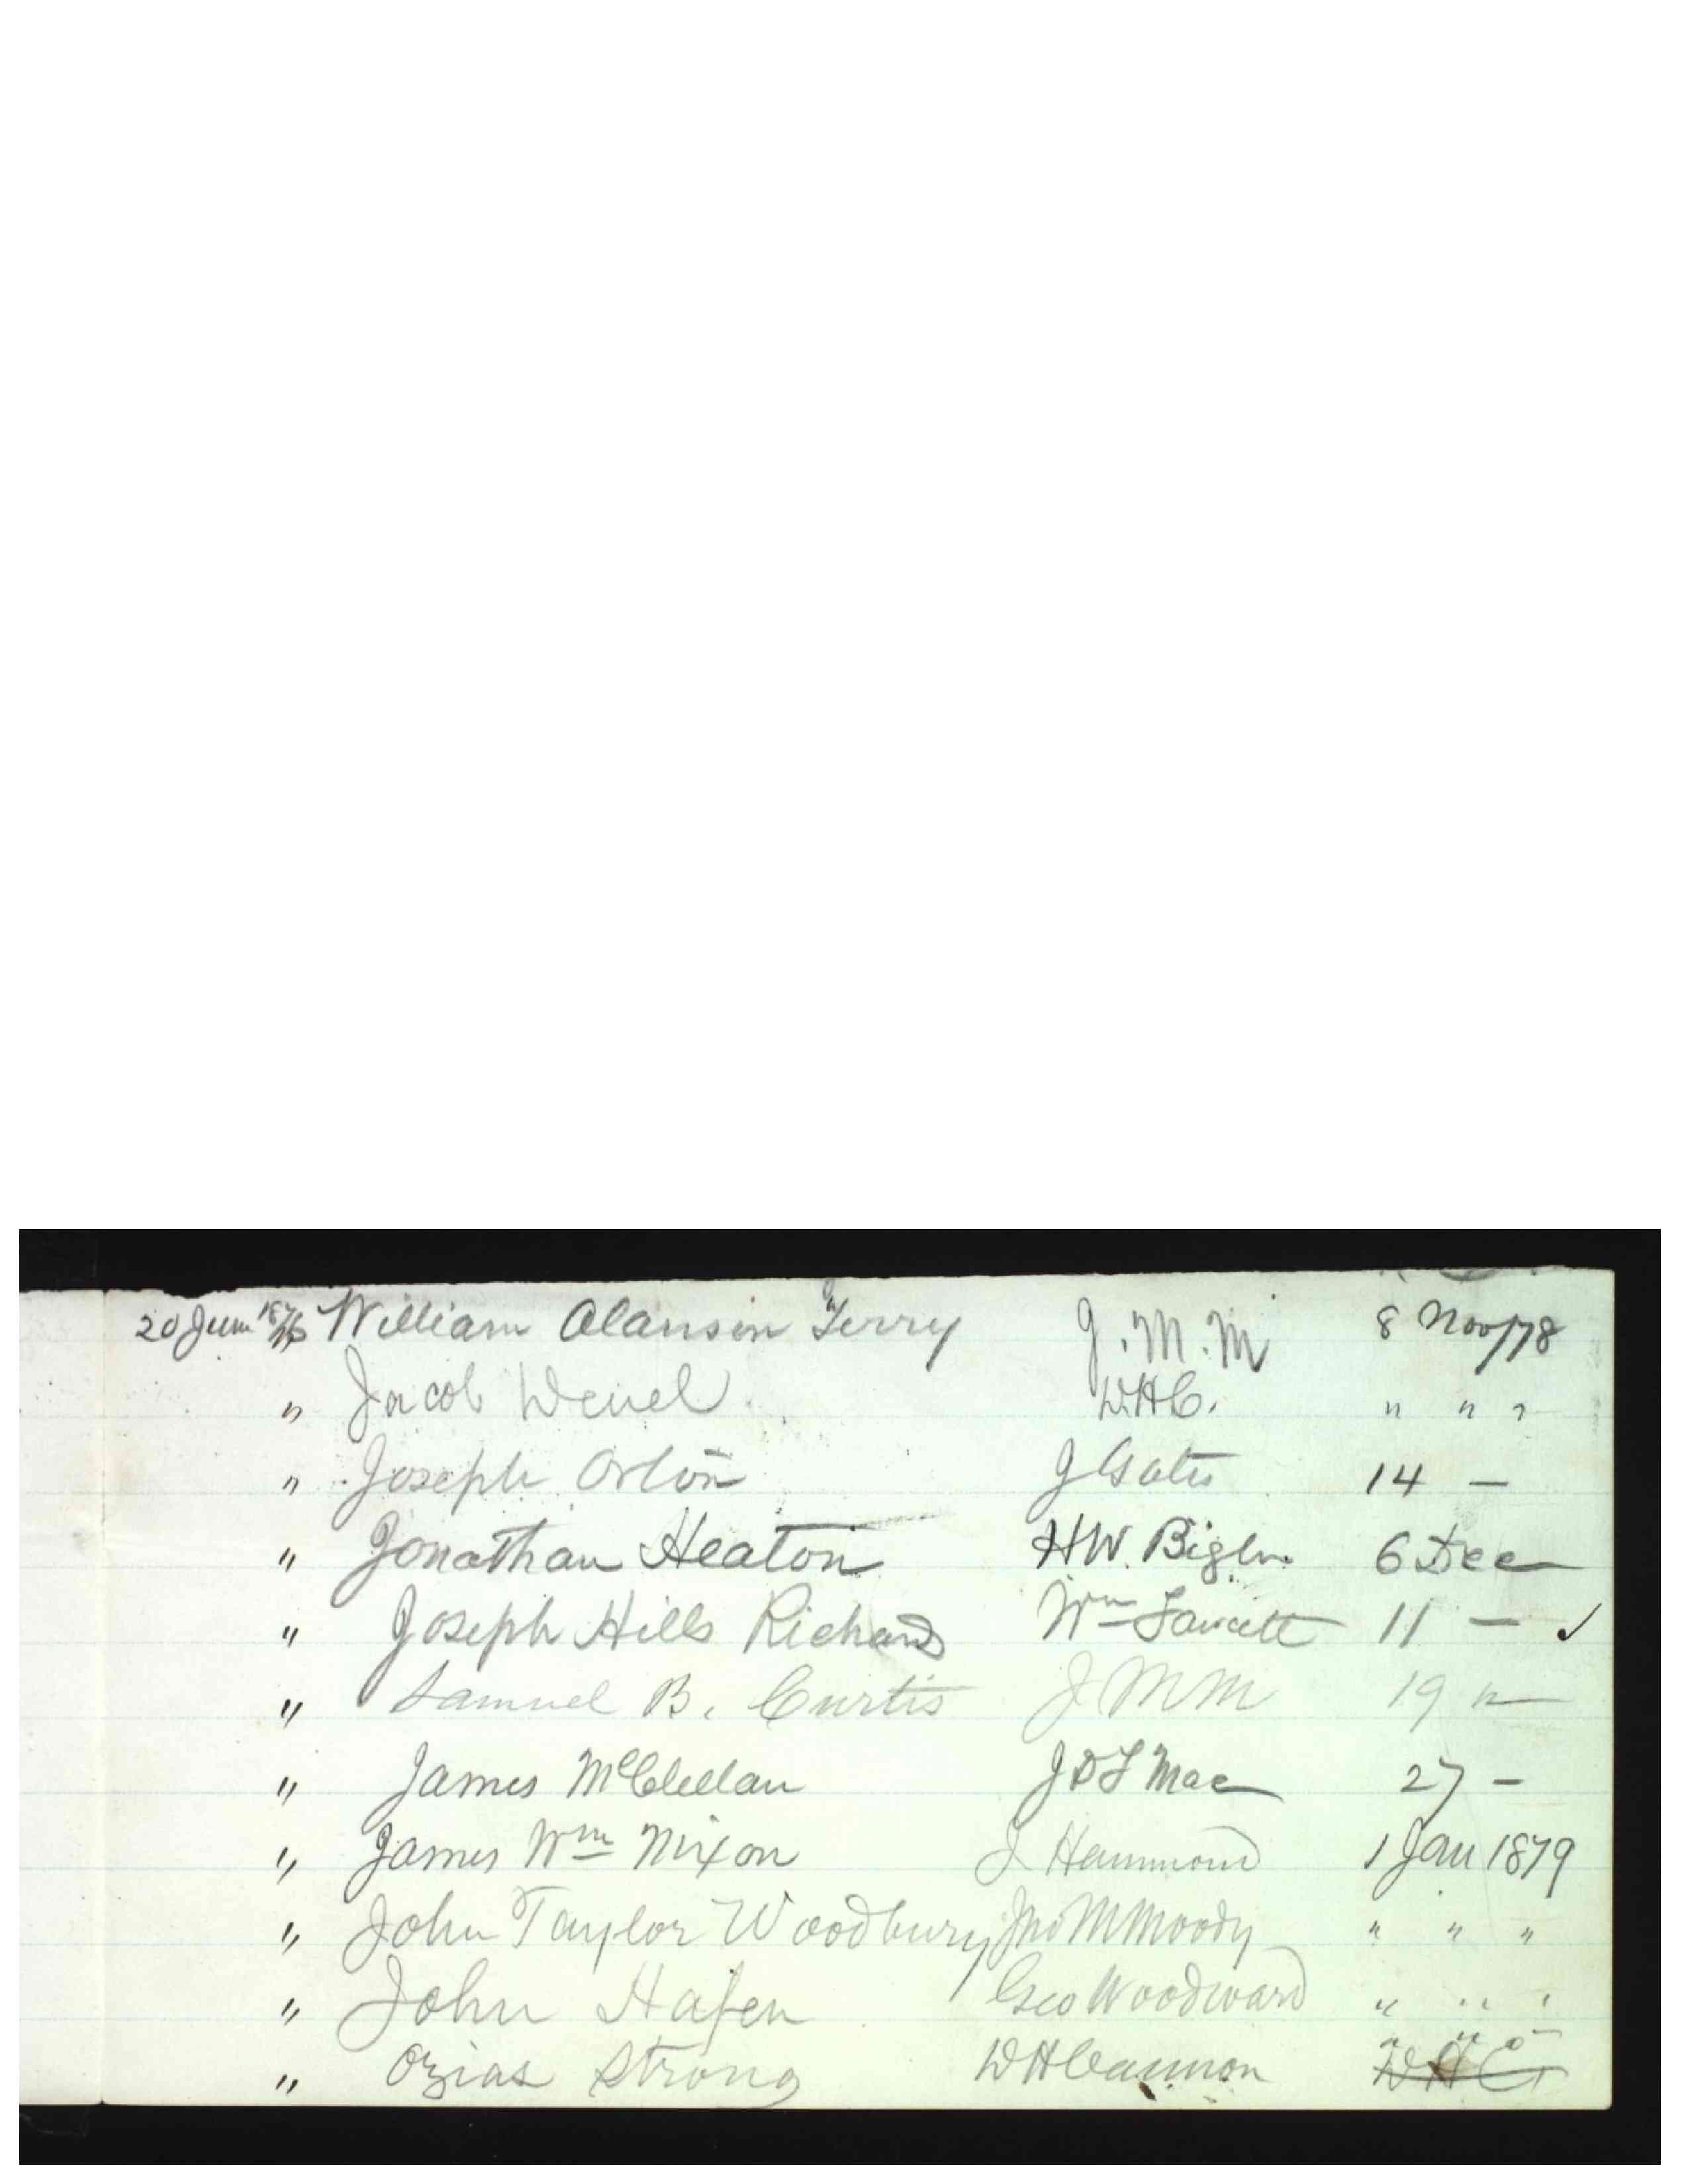 20 June 1876 William Alanson Terry J. M. M 8 Nov/78
" Jacob Wenel W.H.C. " " "
" Joseph Orton J Gates 14 —
" Jonathan Heaton HW. Bigler 6 Dec
" Joseph Hills Richards Wm Fawcett 11 — ✓
" Samuel B. Curtis J M M 19 "
" James McClellan J D L Mac 27 —
" James Wm Nixon J Hammond 1 Jan 1879
" John Taylor Woodbury Jno M Moody " " "
" John Hafen Geo Woodward " " "
" Ozias Strong W H Cannon " " "